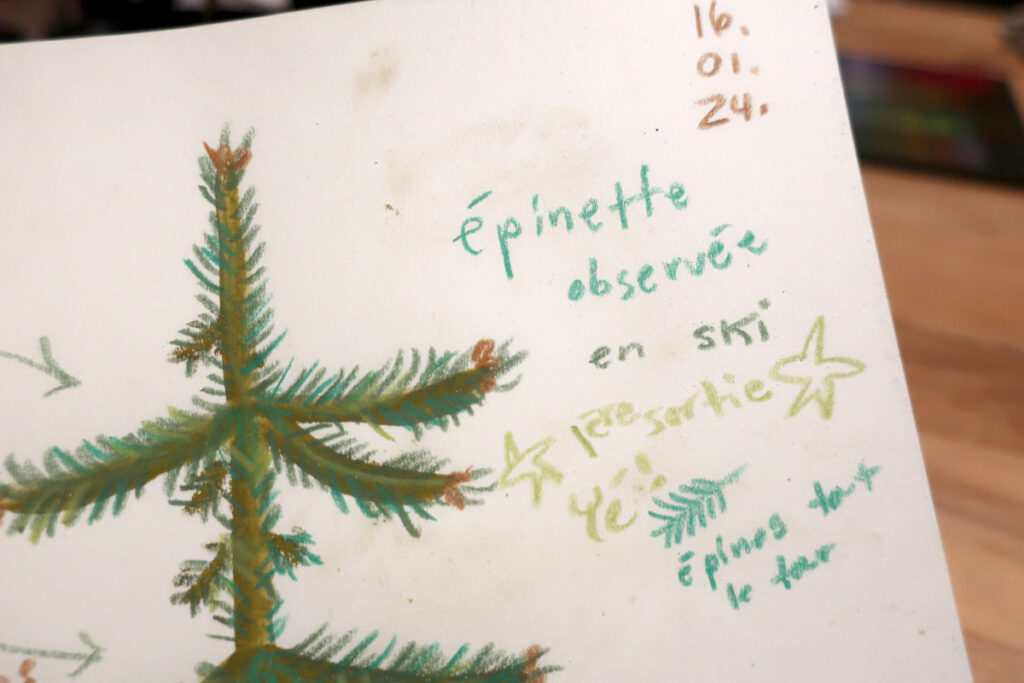 16.
01.
24.
épinette
observée
en ski
1ère sortie
Yé
épines tout
le tour